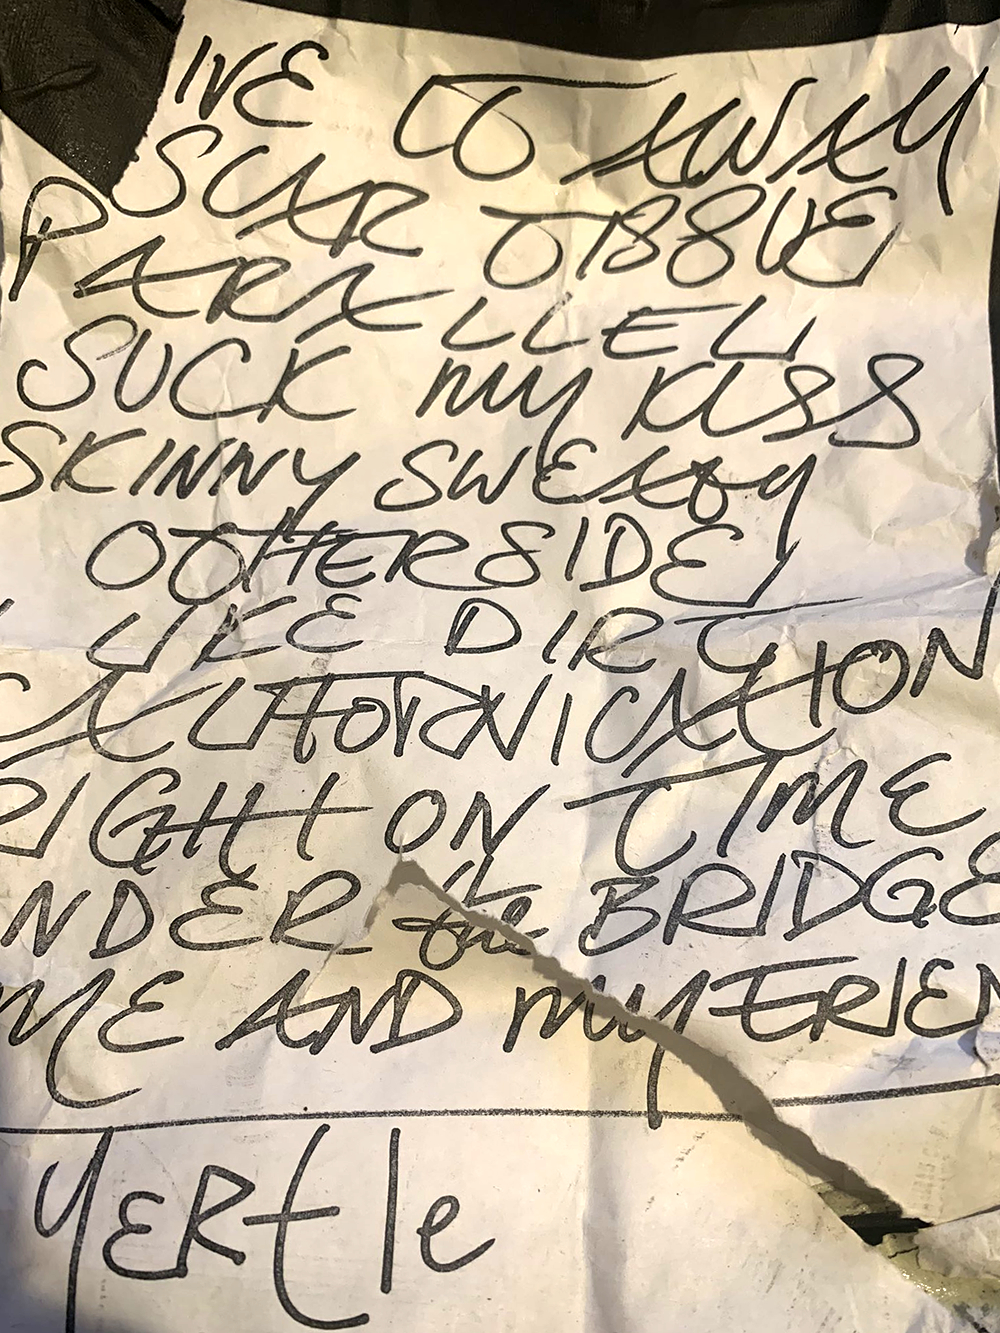 IVE TO AWAY
SCAR TISSUE
PARALLEL
SUCK MY KISS
SKINNY SWEATY
OTHERSIDE
LIKE DIRT
CALIFORNICATION
RIGHT ON TIME
NDER the BRIDGE
ME AND MY FRIEN
YERtle